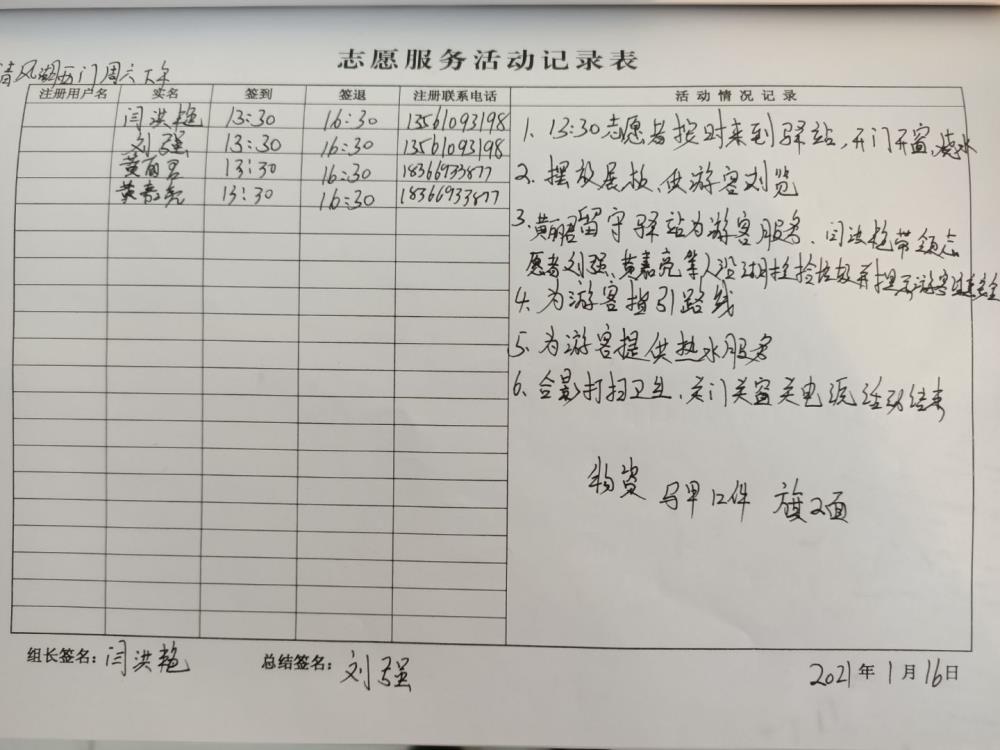 志愿服务活动记录表
清风湖西门周六下午
注册用户名 实名 签到 签退 注册联系电话 活动情况记录
闫洪艳 13:30 16:30 13561093198
刘强 13:30 16:30 13561093198
黄丽君 13:30 16:30 18366933877
黄嘉亮 13:30 16:30 18366933877
1. 13:30志愿者按时来到驿站,开门开窗,烧水
2. 摆放展板、供游客浏览
3. 黄丽君留守驿站为游客服务、闫洪艳带领志
愿者刘强、黄嘉亮等人沿湖捡垃圾并提示游客注意安全
4. 为游客指引路线
5. 为游客提供热水服务
6. 合影打扫卫生、关门关窗关电源活动结束
物资 马甲12件 旗2面
组长签名:闫洪艳 总结签名:刘强 2021年1月16日